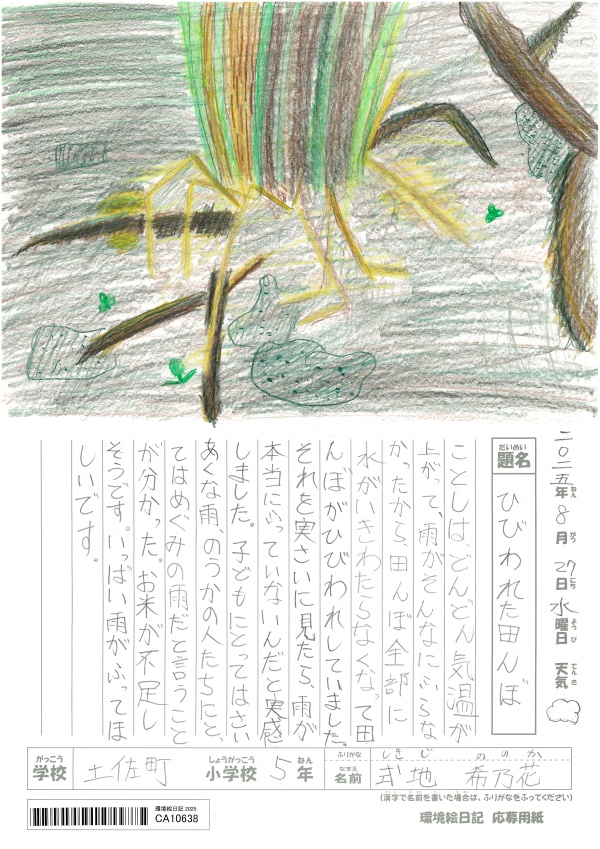 二〇二五年8月27日水曜日 天気
ねん がつ にち ようび てんき
だいめい
題名 ひびわれた田んぼ
ことしは、どんどん気温が
上がって、雨がそんなにふらな
かったから、田んぼ全部に
水がいきわたらなくなって田
んぼがひびわれしていました。
それを実さいに見たら、雨が
本当にふっていないんだと実感
しました。子どもにとってはさい
あくな雨、のうかの人たちにと
てはめぐみの雨だと言うこと
が分かった。お米が不足し
そうです。いっぱい雨がふってほ
しいです。
がっこう しょうがっこう ねん ふりがな しきじ ののか
学校 土佐町 小学校 5年 なまえ 名前 式地 希乃花
(漢字で名前を書いた場合は、ふりがなをふってください)
環境絵日記 2025
CA10638
環境絵日記 応募用紙